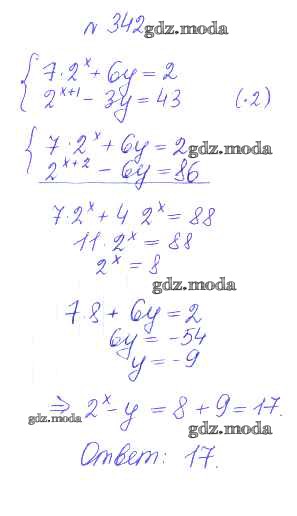 № 342 gdz.moda
{ 7·2ˣ + 6y = 2
2ˣ⁺¹ - 3y = 43 (·2)
{ 7·2ˣ + 6y = 2 gdz.moda
2ˣ⁺² - 6y = 86
gdz.moda
7·2ˣ + 4 2ˣ = 88
11·2ˣ = 88
2ˣ = 8
gdz.moda
7·8 + 6y = 2
6y = -54
gdz.moda
y = -9
⇒ 2ˣ - y = 8 + 9 = 17.
gdz.moda
gdz.moda
Ответ: 17.